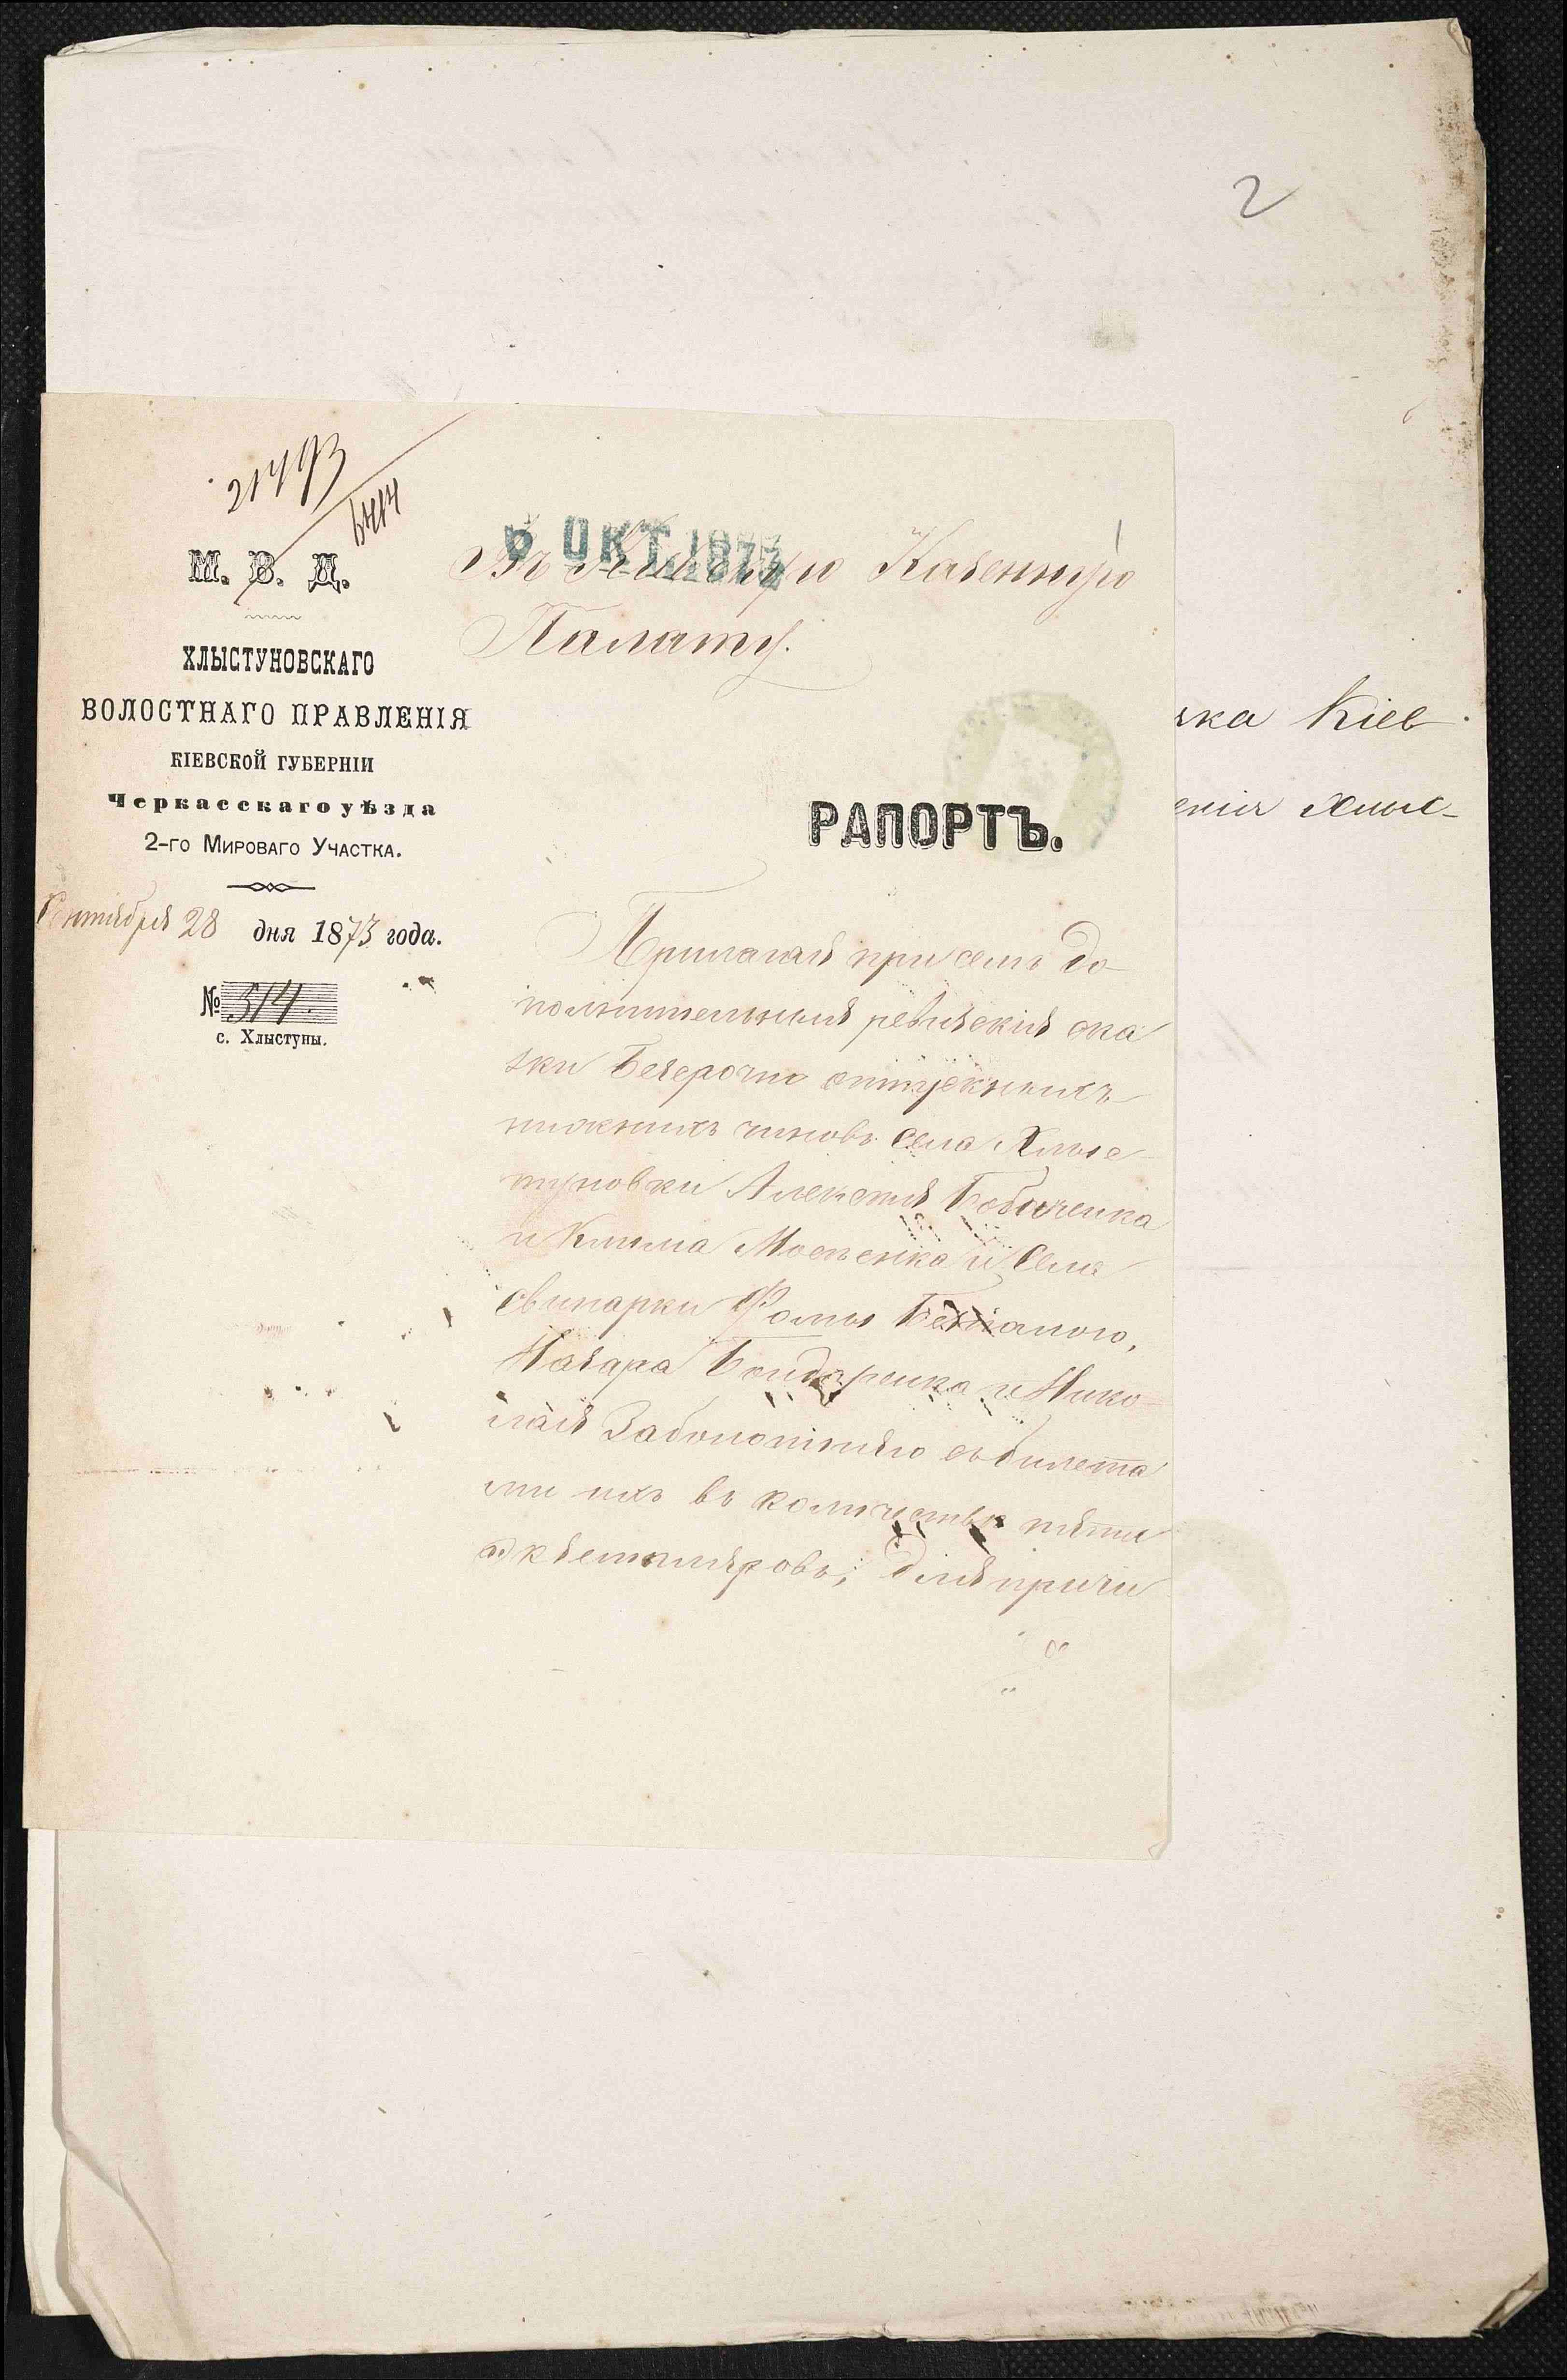 2
21493
6414
М. В. Д.
ХЛЫСТУНОВСКАГО
ВОЛОСТНАГО ПРАВЛЕНІЯ
КІЕВСКОЙ ГУБЕРНІИ
Черкасскаго уѣзда
2-го Мироваго Участка.
Сентября 28 дня 1873 года.
№ 514.
с. Хлыстуны.
6 ОКТ. 1873
1
Въ Кіевскую Казенную
Палату.
РАПОРТЪ.
Прилагая при семъ до-
полнительныя ревизскія ска
зки безсрочно отпускныхъ
нижнихъ чиновъ села Хлыс-
туновки Алексѣя
и Клима и села
Свинарки Фомы
Назара Бондаренка и Нико-
лая Заболотняго съ билета
ми ихъ въ количествѣ пяти
экземпляровъ; для причи
ка Кіев
енія Хлыс-